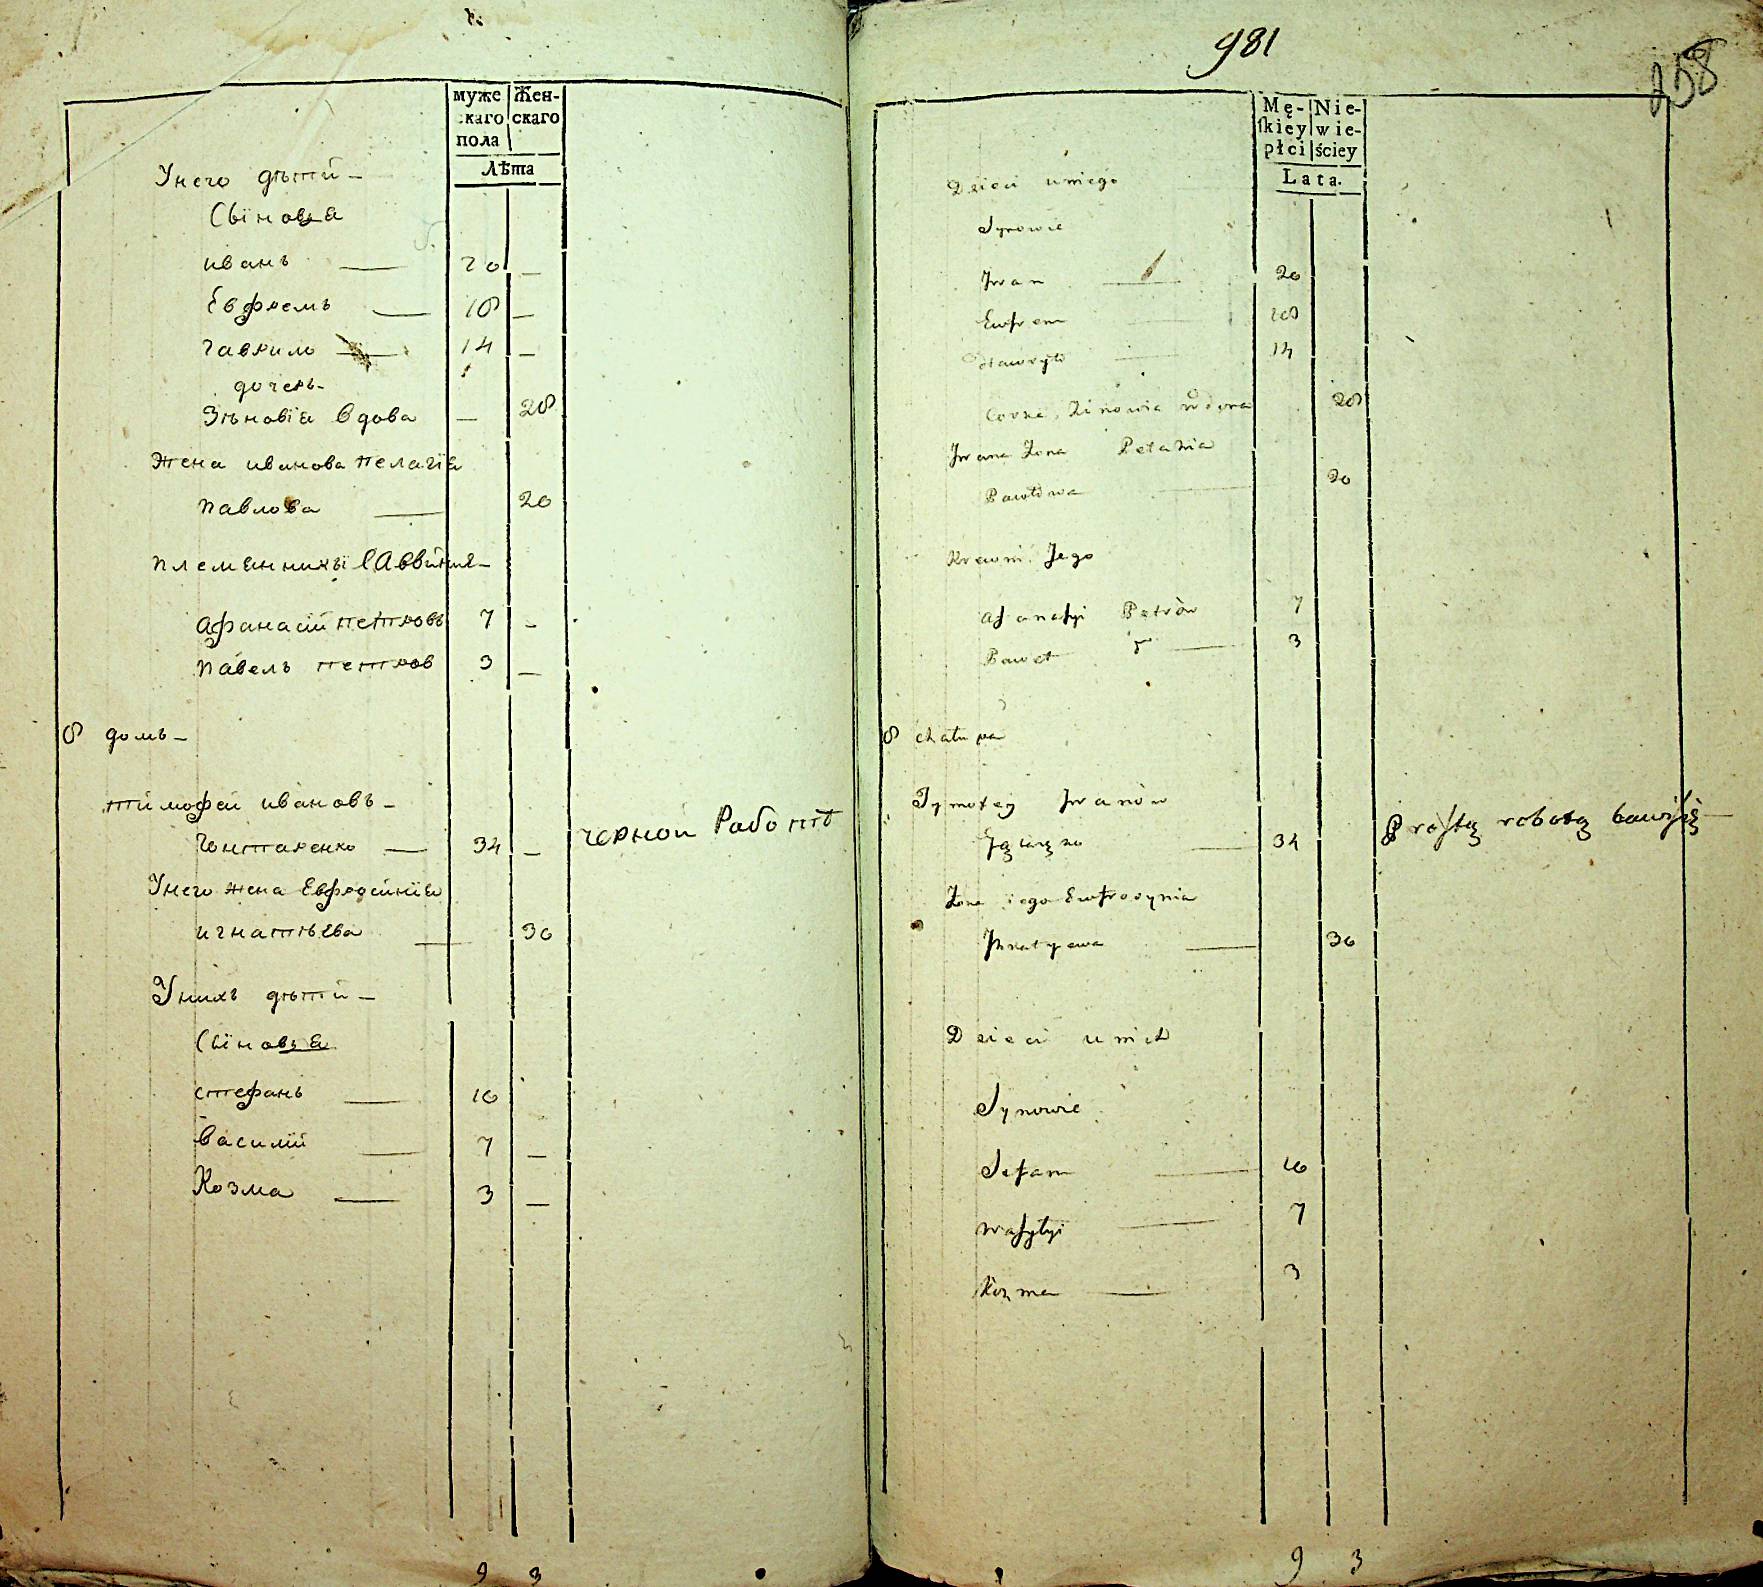 муже
скаго
пола
Жен-
скаго
Лѣта
Унего дѣти -
Сыновя
иванъ — 20 —
Евфремъ — 18 —
Гаврило — 14 —
дочерь -
Зѣновія вдова — 28
Жена иванова пелагія
павлова — 20
племянники
афанасій петровъ 7 -
павелъ петров 3 —
8 домъ -
тимофей ивановъ -
34 —
черной Работѣ
Унего жена Евфросинія
игнатѣева — 30
Унихъ дѣти -
Сыновя
стефанъ — 10
василій — 7 —
Козма — 3 —
9 3
981
258
Mę-
ſkiey
płci
Nie-
wie-
ściey
Lata.
Dzieci uniego
Synowie
Jwan — 20
Eufrem — 18
Hawryło — 14
Corka Zinowia wdowa 28
Jwana Zona Pelahia
Pawłowa — 20
Krewni Jego
Afanaſyi Petrów 7
Paweł — 3
8 chałupa
Tymofey Jwanów
— 34
Proſtą robotą bawiſię —
Zona iego Eufrosynia
Jhnatyewa — 30
Dzieci unich
Synowie
Stefan — 10
Waſylyi — 7
Kozma — 3
9 3